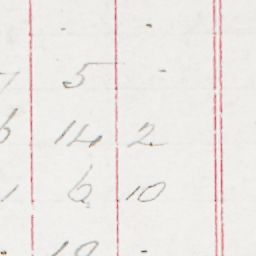 - -
5 -
6 14 2
1 6 10
10 -